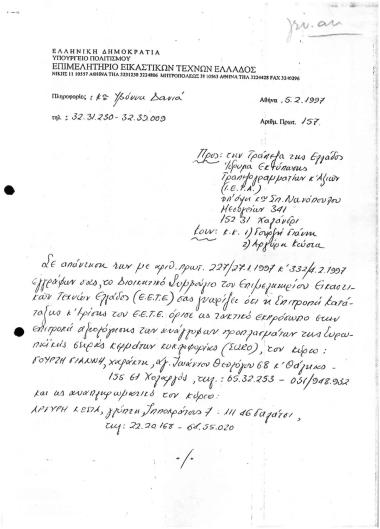 γεν. αν
ΕΛΛΗΝΙΚΗ ΔΗΜΟΚΡΑΤΙΑ
ΥΠΟΥΡΓΕΙΟ ΠΟΛΙΤΙΣΜΟΥ
ΕΠΙΜΕΛΗΤΗΡΙΟ ΕΙΚΑΣΤΙΚΩΝ ΤΕΧΝΩΝ ΕΛΛΑΔΟΣ
ΝΙΚΗΣ 11 10557 ΑΘΗΝΑ ΤΗΛ 3231230 3224806 ΜΗΤΡΟΠΟΛΕΩΣ 10563 ΑΘΗΝΑ ΤΗΛ 3224428 FAX 3240296
Πληροφορίες: κα Υβόννα Δανιά
Αθήνα 5.2.1997
τηλ: 32.31.230 - 32.33.009
Αριθμ. Πρωτ. 157
Προς: την Τράπεζα της Ελλάδος
Ίδρυμα Εκτύπωσης
Τραπεζογραμματίων κ' Αξιών
(Ι.Ε.Τ.Α.)
υπ' όψη κου Σπ. Νανόπουλου
Μεσογείων 341
152 31 Χαλάνδρι
Κοιν: κ.κ. 1) Γουρζή Γιάννη
2) Αργύρη Κώστα
Σε απάντηση των με αριθ. πρωτ. 227/27.1.1997 κ' 332/4.2.1997
εγγράφων σας, το Διοικητικό Συμβούλιο του Επιμελητηρίου Εικαστι-
κών Τεχνών Ελλάδος (Ε.Ε.Τ.Ε.) σας γνωρίζει ότι η Επιτροπή Κατά-
ταξης κ' Κρίσης του Ε.Ε.Τ.Ε. όρισε ως τακτικό εκπρόσωπο στην
επιτροπή αξιολόγησης των ανάγλυφων προπλασμάτων της ευρω-
παϊκής σειράς κερμάτων κυκλοφορίας (EURO), τον κύριο:
ΓΟΥΡΖΗ ΓΙΑΝΝΗ, χαράκτη, Αγ. Ιωάννου Θεολόγου 68 κ'
155 61 Χολαργός, τηλ.: 65.32.253 - 031/948.952
και ως αναπληρωματικό τον κύριο:
ΑΡΓΥΡΗ ΚΩΣΤΑ, γλύπτη, Ιπποκράτους 7 - 111 46 Γαλάτσι,
τηλ: 22.20.168 - 64.55.020
-/-